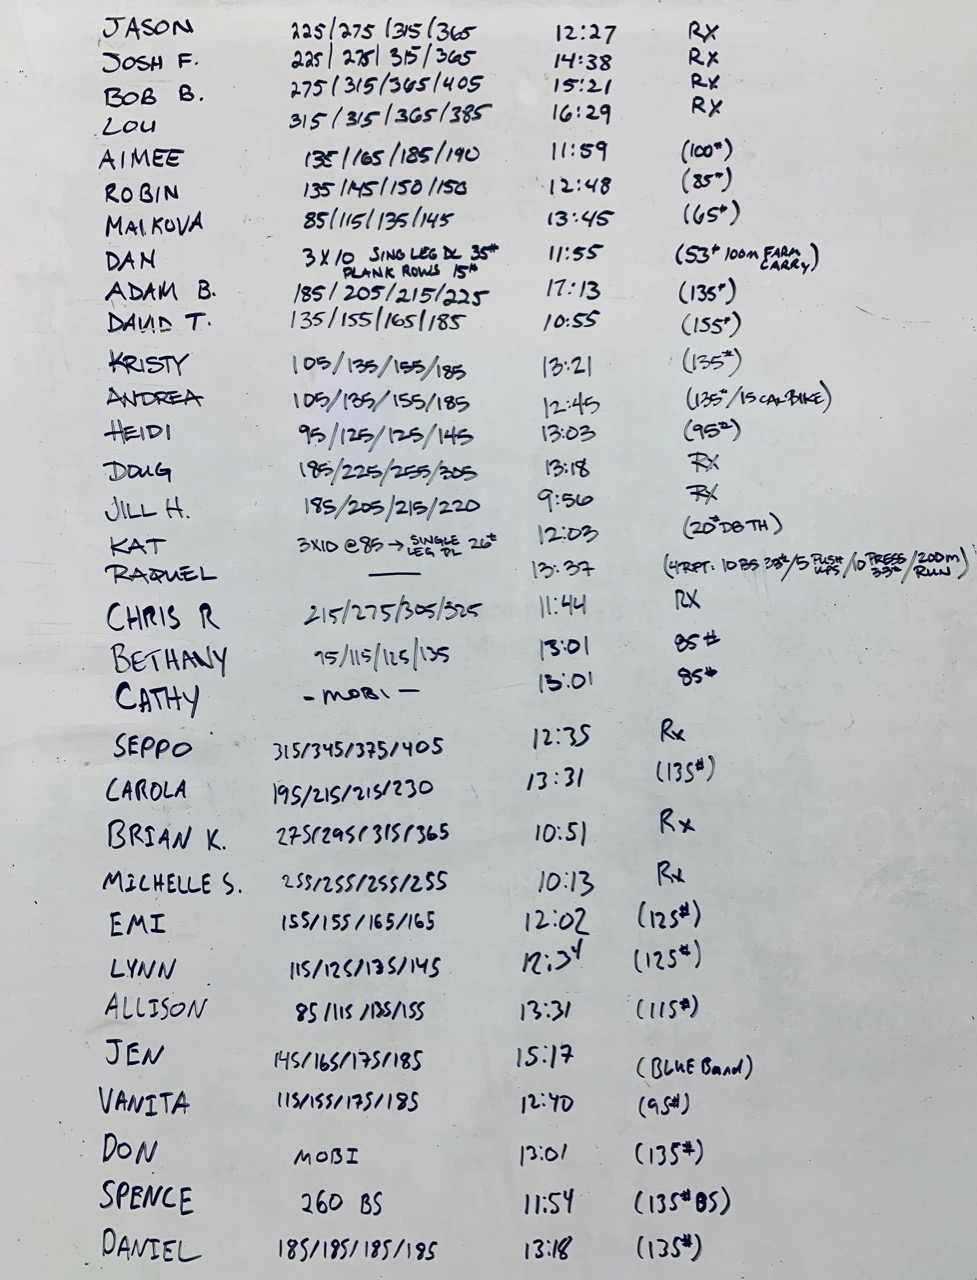 JASON 225/275/315/365 12:27 RX
JOSH F. 225/275/315/365 14:38 RX
BOB B. 275/315/365/405 15:21 RX
LOU 315/315/365/385 16:29 RX
AIMEE 135/165/185/190 11:59 (100#)
ROBIN 135/145/150/150 12:48 (85#)
MALKOVA 85/115/135/145 13:45 (65#)
DAN 3X10 SING LEG DL 35# 11:55 (53# 100m FARM
PLANK ROWS 15# CARRY)
ADAM B. 185/205/215/225 17:13 (135#)
DAVID T. 135/155/165/185 10:55 (155#)
KRISTY 105/135/155/185 13:21 (135#)
ANDREA 105/135/155/185 12:45 (135#/15 CAL BIKE)
HEIDI 95/125/125/145 13:03 (95#)
DOUG 185/225/255/305 13:18 RX
JILL H. 185/205/215/220 9:56 RX
KAT 3X10 @85 → SINGLE LEG DL 26# 12:03 (20# DB TH)
RAQUEL — 13:37 (4RFT: 10 BS 33#/5 PUSH UPS/10 PRESS 33#/200m RUN)
CHRIS R 215/275/305/325 11:44 RX
BETHANY 95/115/125/135 13:01 85#
CATHY - MOBI - 13:01 85#
SEPPO 315/345/375/405 12:35 Rx
CAROLA 195/215/215/230 13:31 (135#)
BRIAN K. 275/295/315/365 10:51 Rx
MICHELLE S. 255/255/255/255 10:13 Rx
EMI 155/155/165/165 12:02 (125#)
LYNN 115/125/135/145 12:34 (125#)
ALLISON 85/115/135/155 13:31 (115#)
JEN 145/165/175/185 15:17 (BLUE Band)
VANITA 115/155/175/185 12:40 (95#)
DON MOBI 13:01 (135#)
SPENCE 260 BS 11:54 (135# BS)
DANIEL 185/185/185/185 13:18 (135#)